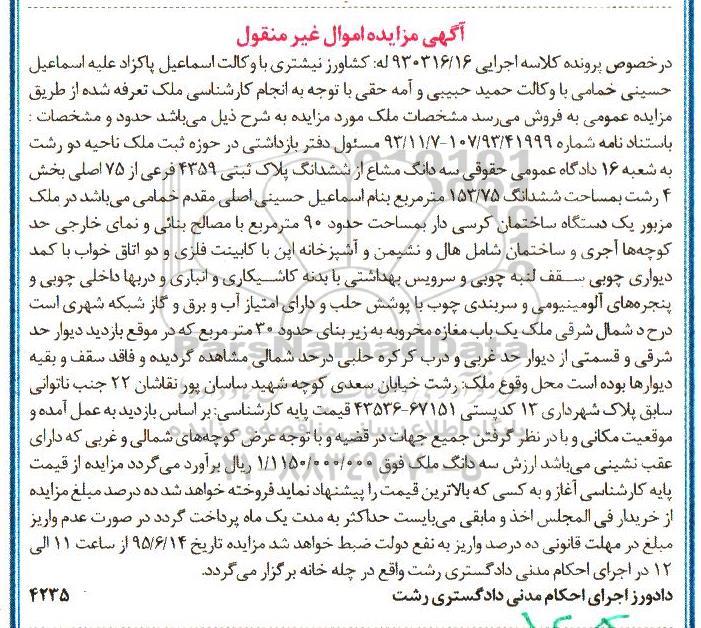 آگهی مزایده اموال غیر منقول
درخصوص پرونده کلاسه اجرایی ۹۳۰۳۱۶/۱۶ له: کشاورز نیشتری با وکالت اسماعیل پاکزاد علیه اسماعیل
حسینی خمامی با وکالت حمید حبیبی و آمه حقی با توجه به انجام کارشناسی ملک تعرفه شده از طریق
مزایده عمومی به فروش می‌رسد مشخصات ملک مورد مزایده به شرح ذیل می‌باشد حدود و مشخصات :
باستناد نامه شماره ۱۰۷/۹۳/۴۱۹۹۹-۹۳/۱۱/۷ مسئول دفتر بازداشتی در حوزه ثبت ملک ناحیه دو رشت
به شعبه ۱۶ دادگاه عمومی حقوقی سه دانگ مشاع از ششدانگ پلاک ثبتی ۴۳۵۹ فرعی از ۷۵ اصلی بخش
۴ رشت بمساحت ششدانگ ۱۵۳/۷۵ مترمربع بنام اسماعیل حسینی اصلی مقدم خمامی می‌باشد در ملک
مزبور یک دستگاه ساختمان کرسی دار بمساحت حدود ۹۰ مترمربع با مصالح بنائی و نمای خارجی حد
کوچه‌ها آجری و ساختمان شامل هال و نشیمن و آشپزخانه اپن با کابینت فلزی و دو اتاق خواب با کمد
دیواری چوبی سقف لنبه چوبی و سرویس بهداشتی با بدنه کاشیکاری و انباری و دربها داخلی چوبی و
پنجره‌های آلومینیومی و سربندی چوب با پوشش حلب و دارای امتیاز آب و برق و گاز شبکه شهری است
درح د شمال شرقی ملک یک باب مغازه مخروبه به زیر بنای حدود ۳۰ متر مربع که در موقع بازدید دیوار حد
شرقی و قسمتی از دیوار حد غربی و درب کرکره حلبی درحد شمالی مشاهده گردیده و فاقد سقف و بقیه
دیوارها بوده است محل وقوع ملک: رشت خیابان سعدی کوچه شهید ساسان پور نقاشان ۲۲ جنب نانوائی
سابق پلاک شهرداری ۱۳ کدپستی ۶۷۱۵۱-۴۳۵۳۶ قیمت پایه کارشناسی: بر اساس بازدید به عمل آمده و
موقعیت مکانی و با در نظر گرفتن جمیع جهات در قضیه و با توجه عرض کوچه‌های شمالی و غربی که دارای
عقب نشینی می‌باشد ارزش سه دانگ ملک فوق ۱/۱۱۵۰/۰۰۰/۰۰۰ ریال برآورد می‌گردد مزایده از قیمت
پایه کارشناسی آغاز و به کسی که بالاترین قیمت را پیشنهاد نماید فروخته خواهد شد ده درصد مبلغ مزایده
از خریدار فی المجلس اخذ و مابقی می‌بایست حداکثر به مدت یک ماه پرداخت گردد در صورت عدم واریز
مبلغ در مهلت قانونی ده درصد واریز به نفع دولت ضبط خواهد شد مزایده تاریخ ۹۵/۶/۱۴ از ساعت ۱۱ الی
۱۲ در اجرای احکام مدنی دادگستری رشت واقع در چله خانه برگزار می‌گردد.
دادورز اجرای احکام مدنی دادگستری رشت ۴۲۳۵
ParsNamadData
پایگاه اطلاع رسانی مناقصه و مزایده